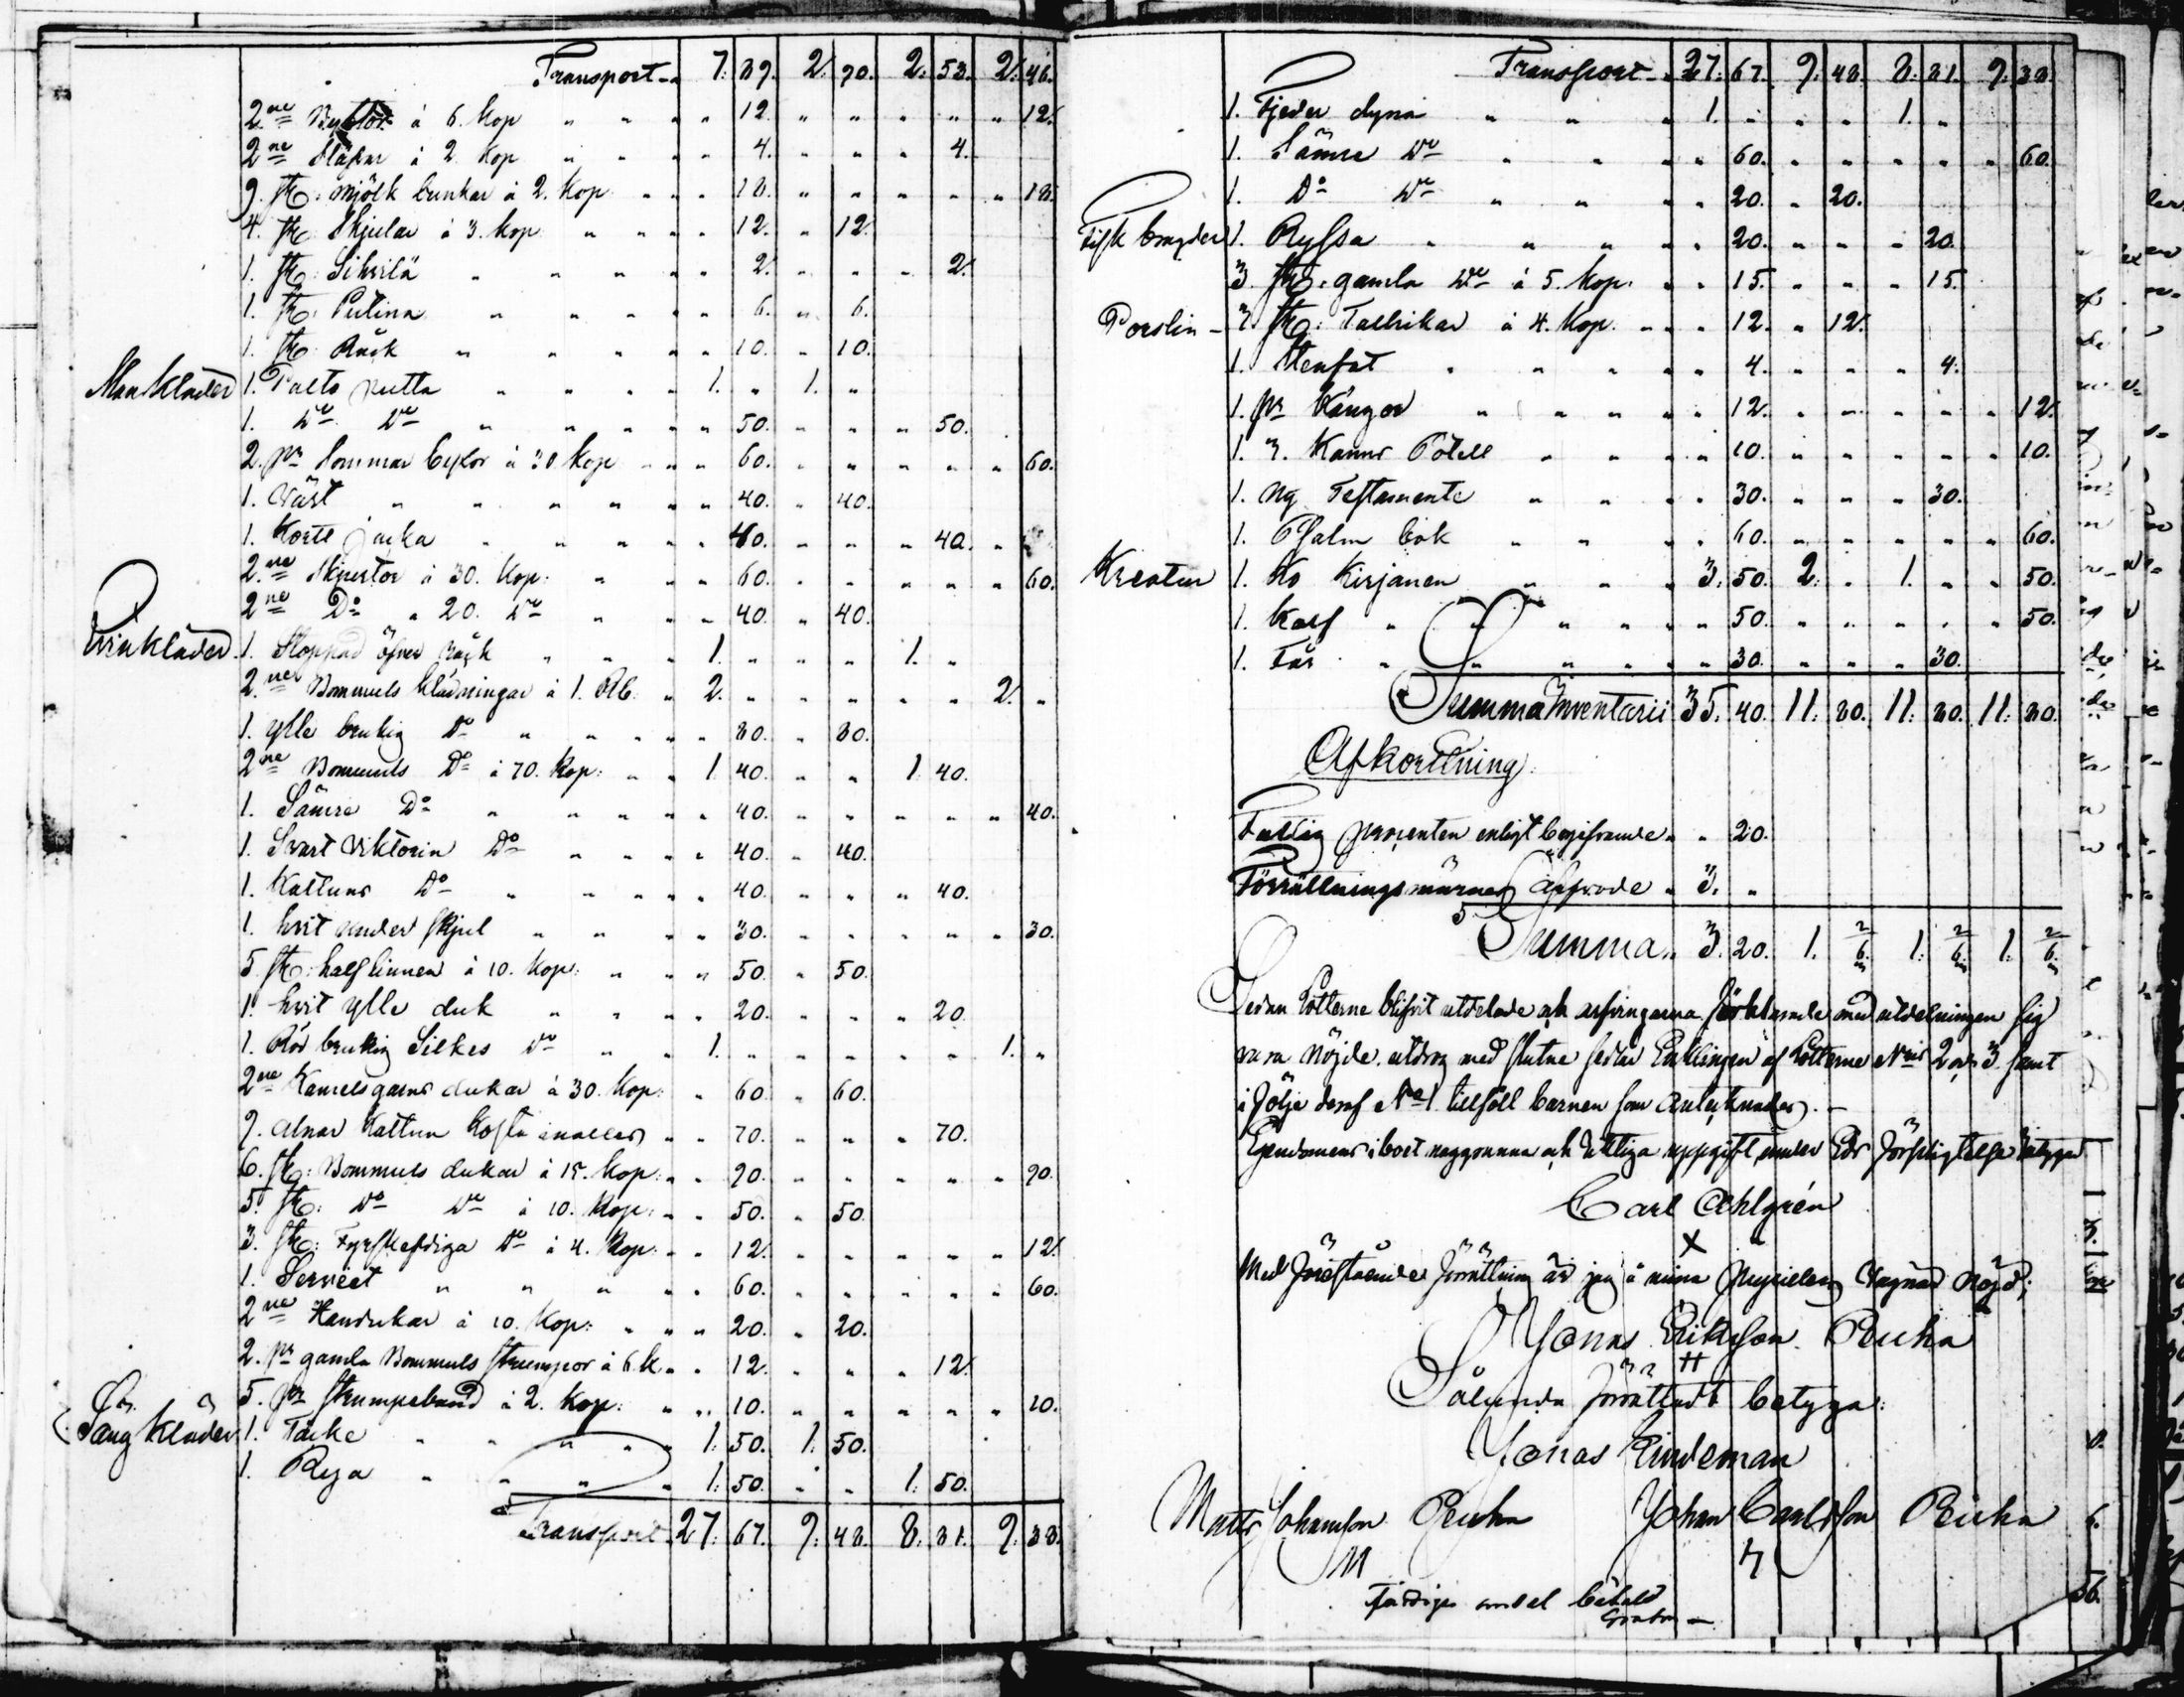 Transport 7: 89. 2: 90. 2: 53. 2: 46.
2ne Byttor à 6. Kop " 12. " " " " " 12.
2ne à 2. Kop " 4. " " " 4.
9. st: mjölk bunkar à 2. Kop " 18. " " " " " 18.
4. st: Skjular à 3. Kop " 12. " 12.
1. st: Sihvilä " 2. " " " 2.
1. st: Putina " 6. " 6.
1. st: Råck " 10. " 10.
Mankläder 1. Palto nutta 1. " 1. "
1. Do Do " 50. " " " 50.
2. pr Sommar byxor à 30. Kop " 60. " " " " " 60.
1. Väst " 40. " 40.
1. Korte jacka " 40. " " " 40.
2.ne Skjortor à 30. Kop: " 60. " " " " " 60.
2ne Do " 20. Do " 40. " 40.
Qvinkläder. 1. Stoppad öfver råck 1. " " " 1. "
2.ne Bommuls klädningar à 1. Rb: " 2. " " " " " 2. "
1. ylle brukig Do " 80. " 80.
2ne Bommuls Do à 70. Kop: 1. 40. " " 1. 40.
1. Sämre Do " 40. " " " " " 40.
1. Svart Viktorin Do " 40. " 40.
1. Kattuns Do " 40. " " " 40.
1. hvit under Skjul " 30. " " " " " 30.
5. st: half linnen à 10. Kop: " 50. " 50.
1. hvit ylle duk " 20. " " " 20.
1. Röd brukig Silkes Do 1. " " " " " 1. "
2ne Kamelsgarns dukar à 30. Kop: " 60. " 60.
7. alnar Kattun " 70. " " " 70.
6. st: Bommuls dukar à 15. Kop: " 90. " " " " " 90.
5. st: Do Do à 10. Kop: " 50. " 50.
3. st: Fyrskeftiga Do à 4. Kop: " 12. " " " " " 12.
1. Serveet " 60. " " " " " 60.
2ne Handukar à 10. Kop: " 20. " 20.
2. pr gamla Bommuls strumpor à 6. K " 12. " " " 12.
5. pr strumpeband à 2. Kop: " 10. " " " " " 10.
Säng Kläder 1. Täcke 1: 50. 1: 50.
1. Rya 1: 50. " " 1: 50.
Transport 27: 67. 9: 48. 8: 81. 9: 38.
Transport 27: 67. 9: 48. 8: 81. 9: 38.
1. Fjeder dyna 1. " " " 1. "
1. Sämre Do " 60. " " " " " 60.
1. Do Do " 20. " 20.
Fisk bragder 1. Ryssa " 20. " " " 20.
3. st: gamla Do à 5. Kop. " 15. " " " 15.
Porslin 3. st: Tallrikar à 4. Kop. " 12. " 12.
1. Stenfat " 4. " " " 4.
1. pr Kängor " 12. " " " " " 12.
1. 3. Kanns Potell " 10. " " " " " 10.
1. Ny Testamente " 30. " " " 30.
1. Psalm bok " 60. " " " " " 60.
Kreatur 1. Ko Kirjanen 3: 50. 2: " 1. " " 50.
1. Kalf " 50. " " " " " 50.
1. Får " 30. " " " 30.
Summa Inventarii 35. 40. 11: 80. 11: 80. 11: 80.
Afkortning:
Fattig procenten enligt begifvande " 20.
Förrättningsmännes Arfvode 3. "
Summa 3. 20. 1. 6 2/3 1: 6 2/3 1: 6 2/3
Sedan Lotterne blifvit utdelade och arfvingarna förklarade med utdelningen sig
vara nöjde, utdrog med slutne sedlar Enklingen af Lotterne Nris 2 och 3 samt
i följe deraf No 1 tillföll barnen som antecknades.
Egendomens i boet noggranna och uppgift under Eds förpligtelse betygar
Carl Ahlgrén
X
Med förestående förrättning är jag å mina vägnar nöjd;
Jonas Eriksson Peuha
H
Sålunda förrättadt betyga:
Jonas Lindeman
Matts Johansson Peuha Johan Carlsson Peuha
M
Fattiges andel betald